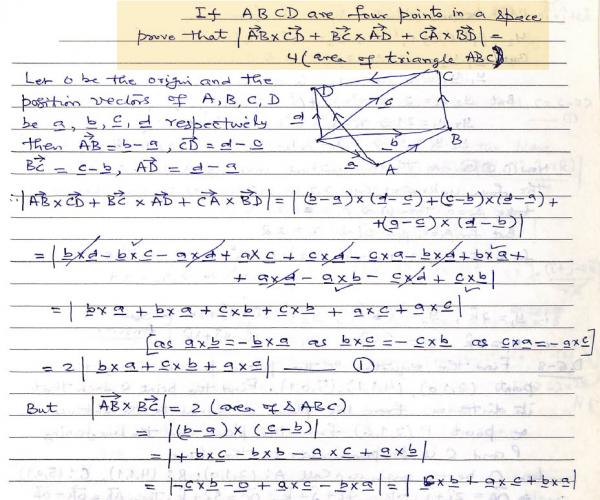 If ABCD are four points in a space
prove that |AB⃗×CD⃗ + BC⃗×AD⃗ + CA⃗×BD⃗| =
4(area of triangle ABC)
Let O be the origin and the
position vectors of A, B, C, D
be a, b, c, d respectively
then AB⃗ = b-a, CD⃗ = d-c
BC⃗ = c-b, AD⃗ = d-a
D
C
c
d
b
B
a
A
∴ |AB⃗×CD⃗ + BC⃗×AD⃗ + CA⃗×BD⃗| = |(b-a)×(d-c)+(c-b)×(d-a)+
+(a-c)×(d-b)|
= |b×d-b×c-a×d+a×c + c×d-c×a-b×d+b×a+
+ a×d-a×b-c×d+c×b|
= |b×a + b×a + c×b + c×b + a×c + a×c|
[as a×b=-b×a as b×c=-c×b as c×a=-a×c]
= 2|b×a+c×b+a×c| —— ①
But |AB⃗×BC⃗| = 2 (area of Δ ABC)
= |(b-a)×(c-b)|
= |+b×c-b×b-a×c+a×b|
= |-c×b-0+a×c-b×a| = |c×b+a×c+b×a|